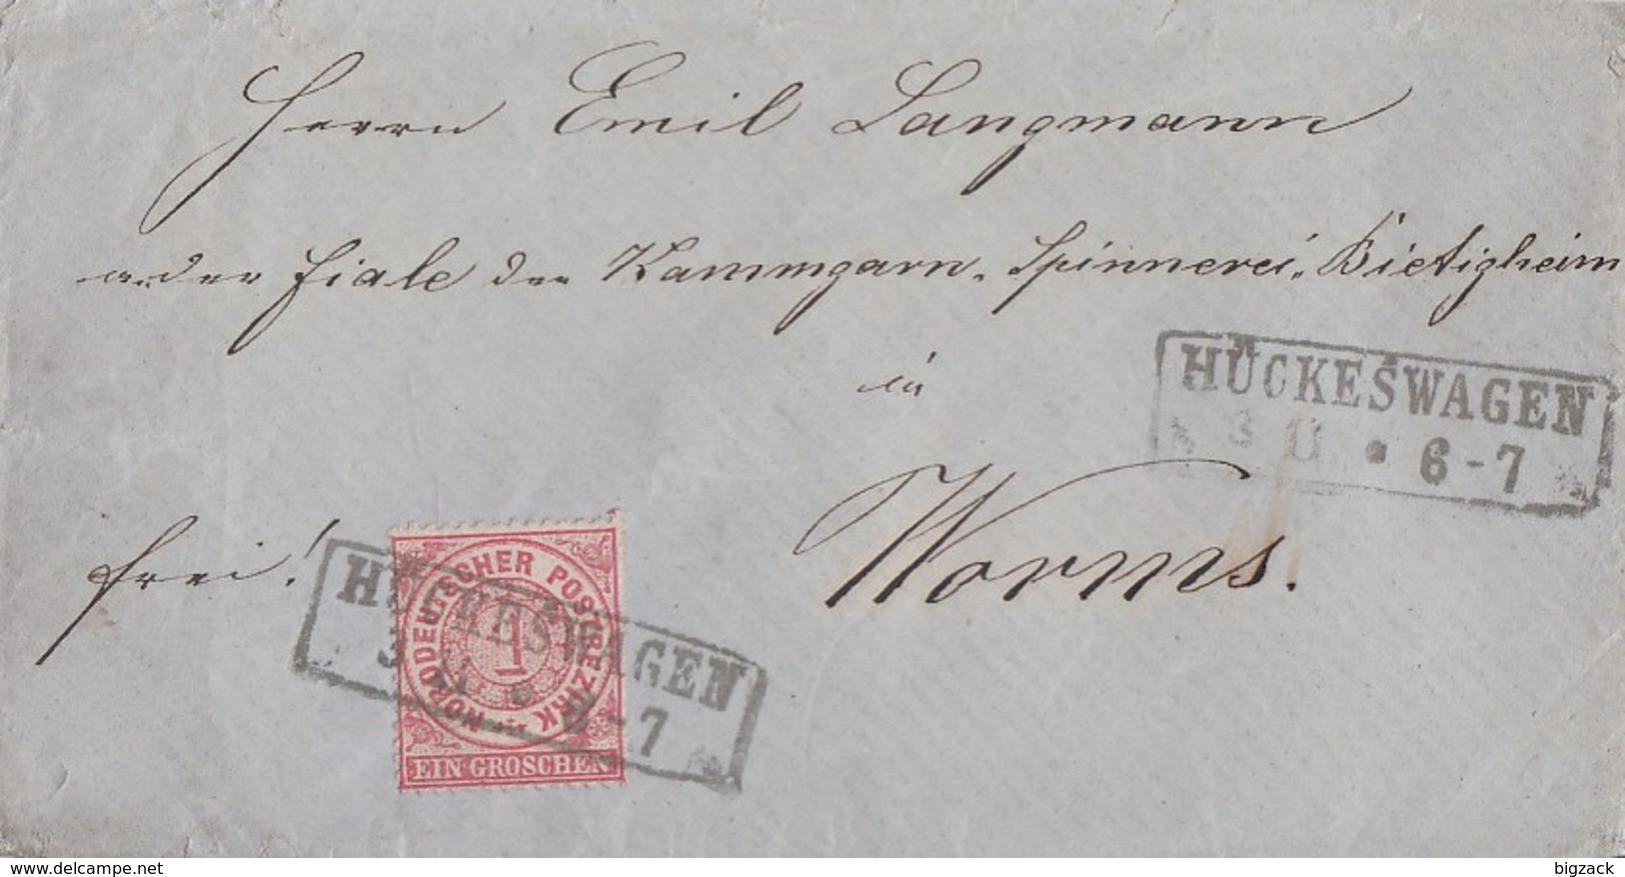 Herrn Emil Langmann
a. der Fiale der Kammgarn-Spinnerei-Bietigheim
in
Worms.
frei!
HÜCKESWAGEN
3 11 * 6-7
NORDDEUTSCHER POSTBEZIRK
1
EIN GROSCHEN
HÜCKESWAGEN
3 11 * 6-7
www.delcampe.net
bigzack